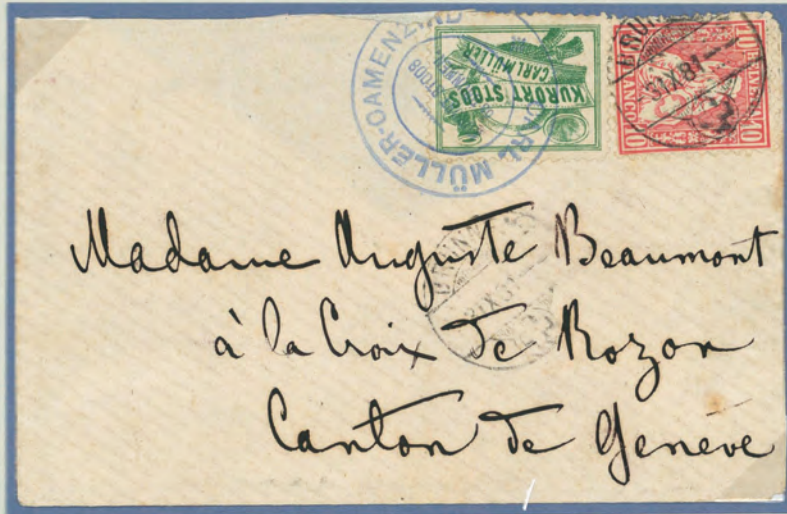 CARL MÜLLER-DAMENZIND
STOOS
KURORT STOOS
CARL MÜLLER
10 10
FRANCO
BRUNNEN
IX 81
Madame Auguste Beaumont
à la Croix de Rozon
Canton de Genève